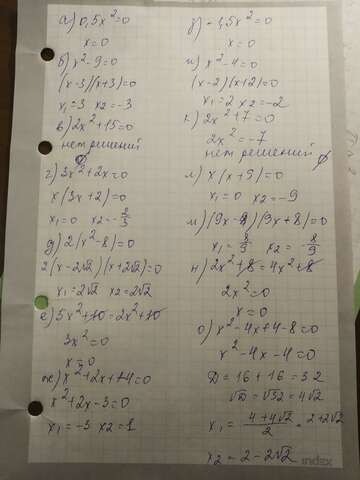 а) 0,5x²=0
x=0
б) x²-9=0
(x-3)(x+3)=0
x₁=3 x₂=-3
в) 2x²+15=0
нет решений ∅
г) 3x²+2x=0
x(3x+2)=0
x₁=0 x₂=-2/3
д) 2(x²-8)=0
2(x-2√2)(x+2√2)=0
x₁=2√2 x₂=2√2
е) 5x²+10=2x²+10
3x²=0
x=0
ж) x²+2x+1-4=0
x²+2x-3=0
x₁=-3 x₂=1
з) -1,5x²=0
x=0
и) x²-4=0
(x-2)(x+2)=0
x₁=2 x₂=-2
к) 2x²+7=0
2x²=-7
нет решений ∅
л) x(x+9)=0
x₁=0 x₂=-9
м) (9x-8)(9x+8)=0
x₁=8/9 x₂=-8/9
н) 2x²+8=4x²+8
2x²=0
x=0
о) x²-4x+4-8=0
x²-4x-4=0
D=16+16=32
√D=√32=4√2
x₁=(4+4√2)/2=2+2√2
x₂=2-2√2
index